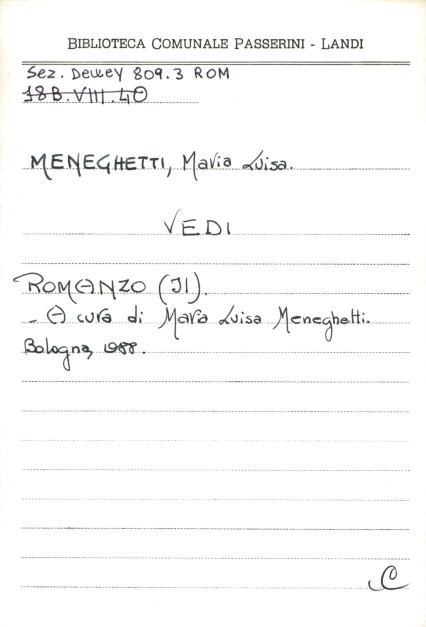 BIBLIOTECA COMUNALE PASSERINI - LANDI
Sez. Dewey 809.3 ROM
18B.VIII.40
MENEGHETTI, Maria Luisa.
VEDI
ROMANZO (Il).
- A cura di Maria Luisa Meneghetti.
Bologna, 1988.
C